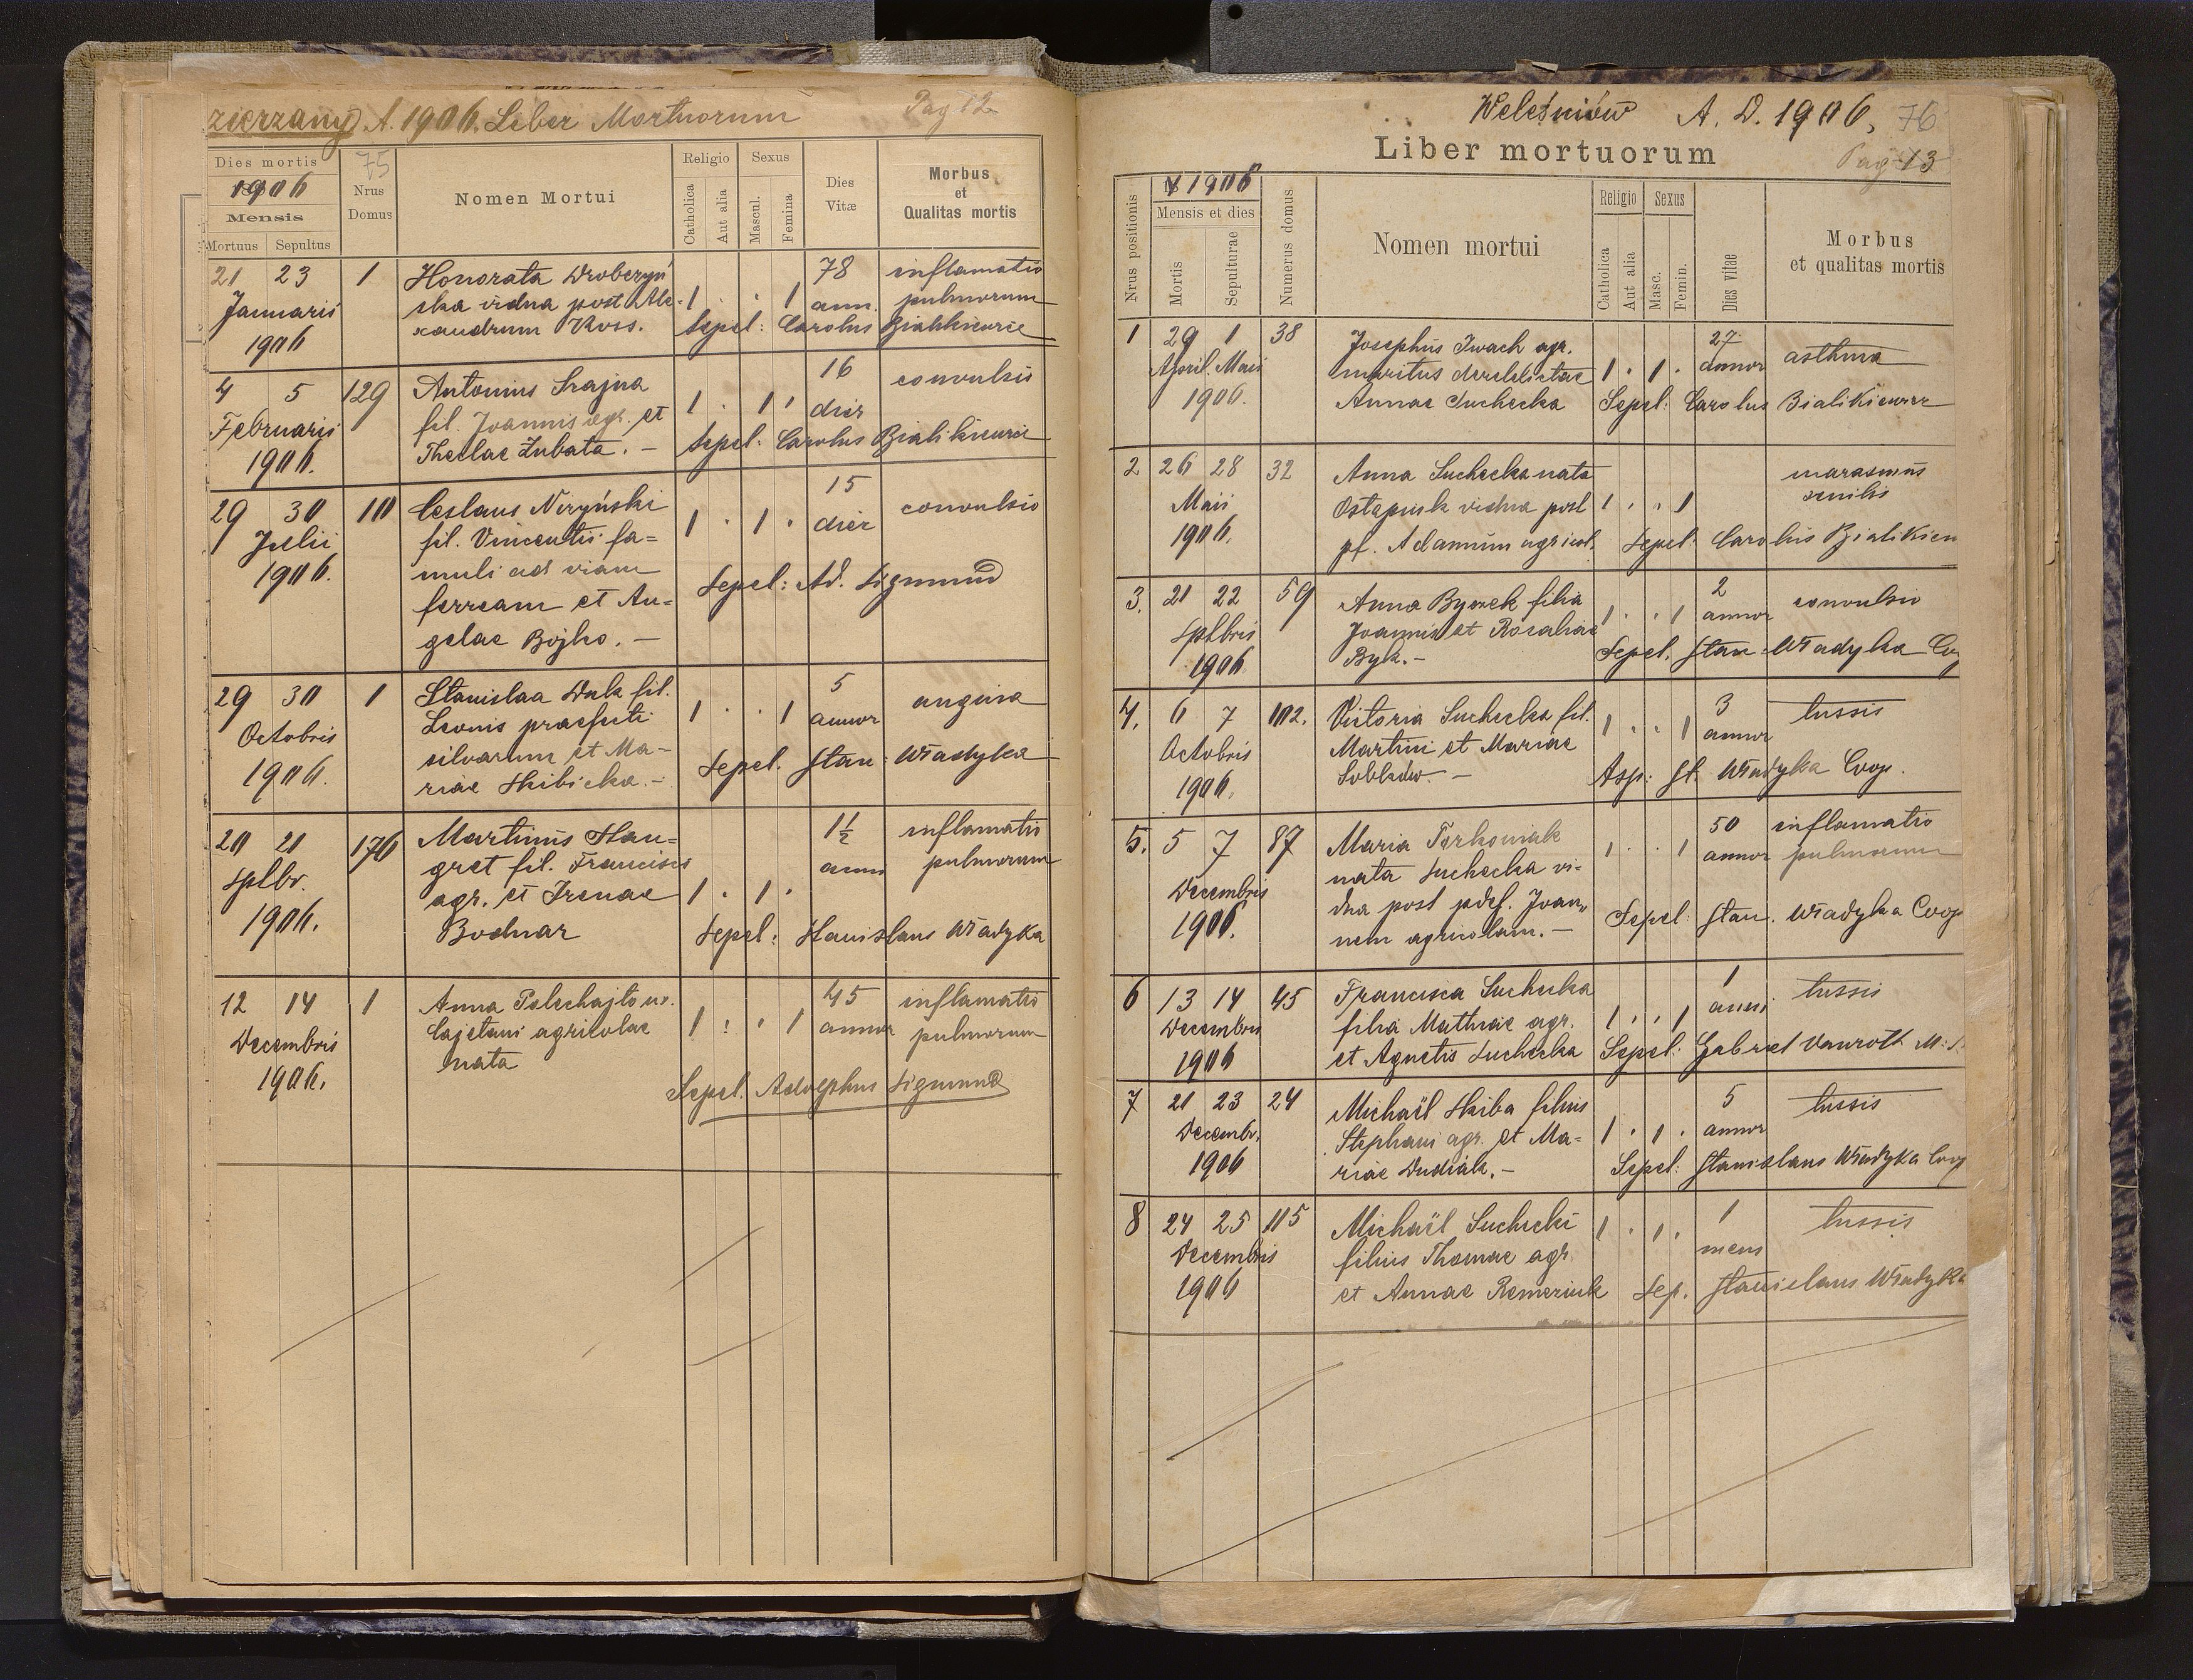 zierzany A. 1906. Liber Mortuorum Pag 12
Dies mortis 75 Religio Sexus
1906 Nrus Nomen Mortui Dies Morbus
Mensis Domus Vitæ et
Mortuus Sepultus Catholica Aut alia Mascul. Femina Qualitas mortis
21 23 1 Honorata 78 inflamatio
Januarii ska vidua post Ale- 1 . . 1 ann. pulmorum
1906 xandrum Koss. Sepel: Carolus Bialikiewicz
4 5 129 Antonius Szajna 16 convulsio
Februarii fil. Joannis agr. et 1 . 1 . dier
1906. Theclae Zubata. – Sepel: Carolus Bialikiewicz
29 30 10 Ceslaus Niżyński 15 convulsio
Julii fil. Vincentii fa= 1 . 1 . dier
1906. muli ad viam Sepel: Ad. Zigmund
ferream et An=
gelae Bojko. –
29 30 1 Stanislaa Duk fil. 5 angina
Octobris Leonis praefecti 1 . . 1 annor
1906. silvarum et Ma- Sepel. Stan: Władyka
riae Skibicka. –
20 21 176 Martinus Hau= 1½ inflamatio
Sptbr. gret fil. Francisci anni pulmorum
1906. agr. et Irenae 1 . 1 .
Bodnar Sepel: Stanislaus Władyka
12 14 1 Anna 45 inflamatio
Decembris Cajetani agricolae 1 . . 1 annor pulmorum
1906. nata
Sepel. Adolphus Zigmund
Weleśniów A. D. 1906, 76
Liber mortuorum Pag 13
Nrus positionis 1906 Numerus domus Nomen mortui Religio Sexus Dies vitae Morbus
Mensis et dies et qualitas mortis
Mortis Sepulturae Catholica Aut alia Masc. Femin.
1 29 1 38 Josephus Iwach agr. 27 asthma
April. Maii maritus derelictae 1 . 1 . annor
1906. Annae Suchecka Sepel: Carolus Bialikiewicz
2 26 28 32 Anna Suchecka nata marasmus
Maii Ostapiuk vidua post 1 . . 1 senilis
1906. pf. Adamum agricol. Sepel: Carolus Bialikiew
3. 21 22 59 Anna Byczek filia 2 convulsio
Sptbris Joannis et Rosaliae 1 . . 1 annor
1906 Byk. – Sepel. Stan: Władyka
4. 6 7 102. Victoria Suchecka fil. 3 tussis
Octobris Martini et Mariae 1 . . 1 annor
1906. – Asp: St. Władyka Coop.
5. 5 7 87 Maria 50 inflamatio
Decembris nata Suchecka vi- 1 . . 1 annor pulmorum
1906. dua post pdef. Joan„
nem agricolam. – Sepel: Stan. Władyka Coop
6 13 14 45 Francisca Suchecka 1 tussis
Decembris filia Mathiae agr. 1 . . 1 anni
1906 et Agnetis Suchecka Sepel: Gabriel
7 21 23 24 Michaël Skiba filius 5 tussis
Decembr. Stephani agr. et Ma- 1 . 1 . annor
1906 riae Dudiak. – Sepel: Stanislaus Władyka Coop
8 24 25 115 Michaël Suchecki 1 . 1 . 1 tussis
Decembris filius Thomae agr. mens
1906 et Annae Sep. Stanislaus Władyka